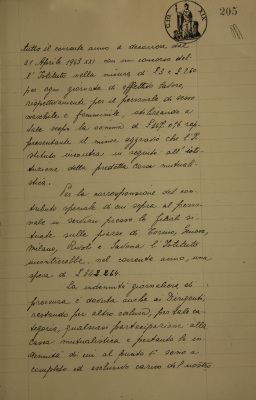 205
tutto il corrente anno a decorrere dal
21 Aprile 1943 XXI con un concorso del
l'Istituto nella misura di £ 3 e £ 2.50
per ogni giornata di effettivo lavoro,
rispettivamente per il personale di sesso
maschile e femminile, utilizzando a
tale scopo la somma di
presentante il minor aggravio che l'I
stituto incontra in seguito all'isti
tuzione della predetta cassa mutuali
stica.
Per la corresponsione del con
tributo speciale di cui sopra al perso
nale in servizio presso le filiali si
tuate sulle piazze di Torino, Genova,
Milano, Rivoli e Savona l'Istituto
incontrerebbe, nel corrente anno, una
spesa di
La indennità giornaliera di
presenza è dovuta anche ai Dirigenti,
restando per altro esclusa, per tale ca
tegoria, qualsiasi partecipazione alla
Cassa mutualistica e pertanto le in
dennità di cui al punto 1° sono a
completo ed esclusivo carico del nostro